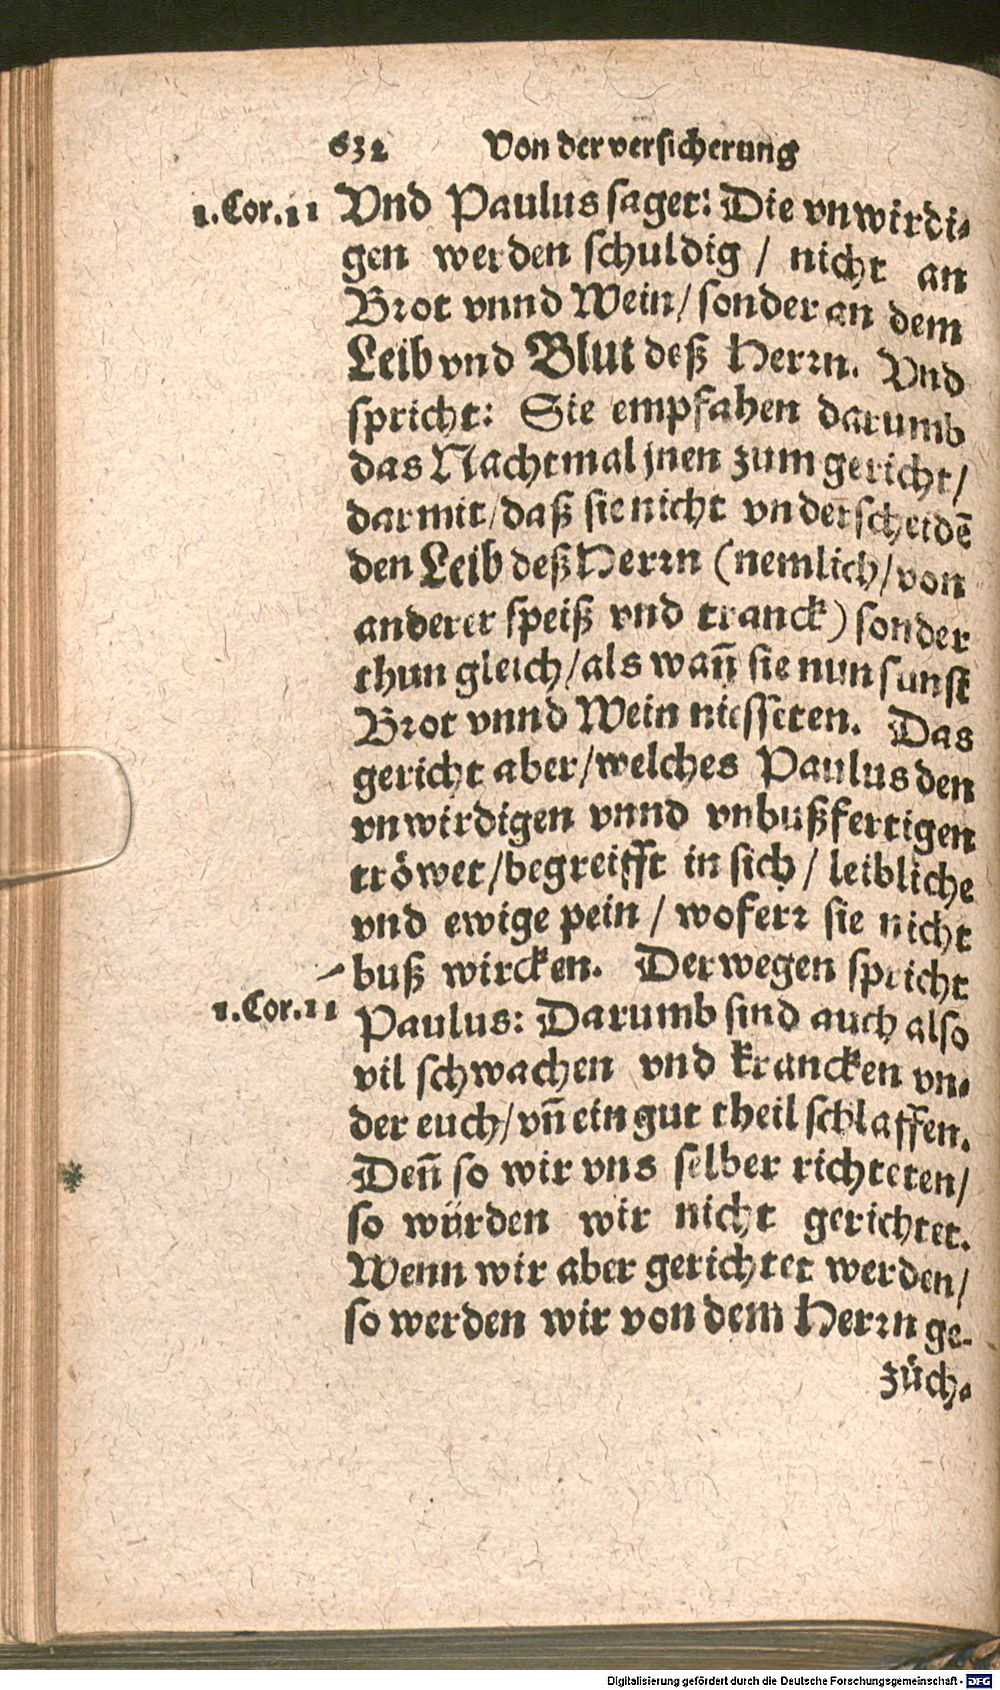 632 Von der versicherung
1.Cor.11 Vnd Paulus saget: Die vnwirdi⸗
gen werden schuldig / nicht an
Brot vnnd Wein / sonder an dem
Leib vnd Blut deß Herrn. Vnd
spricht: Sie empfahen darumb
das Nachtmal jnen zum gericht /
darmit / daß sie nicht vnderscheidē
den Leib deß Herrn (nemlich / von
anderer speiß vnd tranck) sonder
thun gleich / als wañ sie nun sunst
Brot vnnd Wein niesseten. Das
gericht aber / welches Paulus den
vnwirdigen vnnd vnbußfertigen
tröwet / begreifft in sich / leibliche
vnd ewige pein / woferr sie nicht
buß wircken. Derwegen spricht
1.Cor.11 Paulus: Darumb sind auch also
vil schwachen vnd krancken vn⸗
der euch / vñ ein gut theil schlaffen.
Deñ so wir vns selber richteten /
so würden wir nicht gerichtet.
Wenn wir aber gerichtet werden /
so werden wir von dem Herrn ge⸗
züch⸗
Digitalisierung gefördert durch die Deutsche Forschungsgemeinschaft - DFG